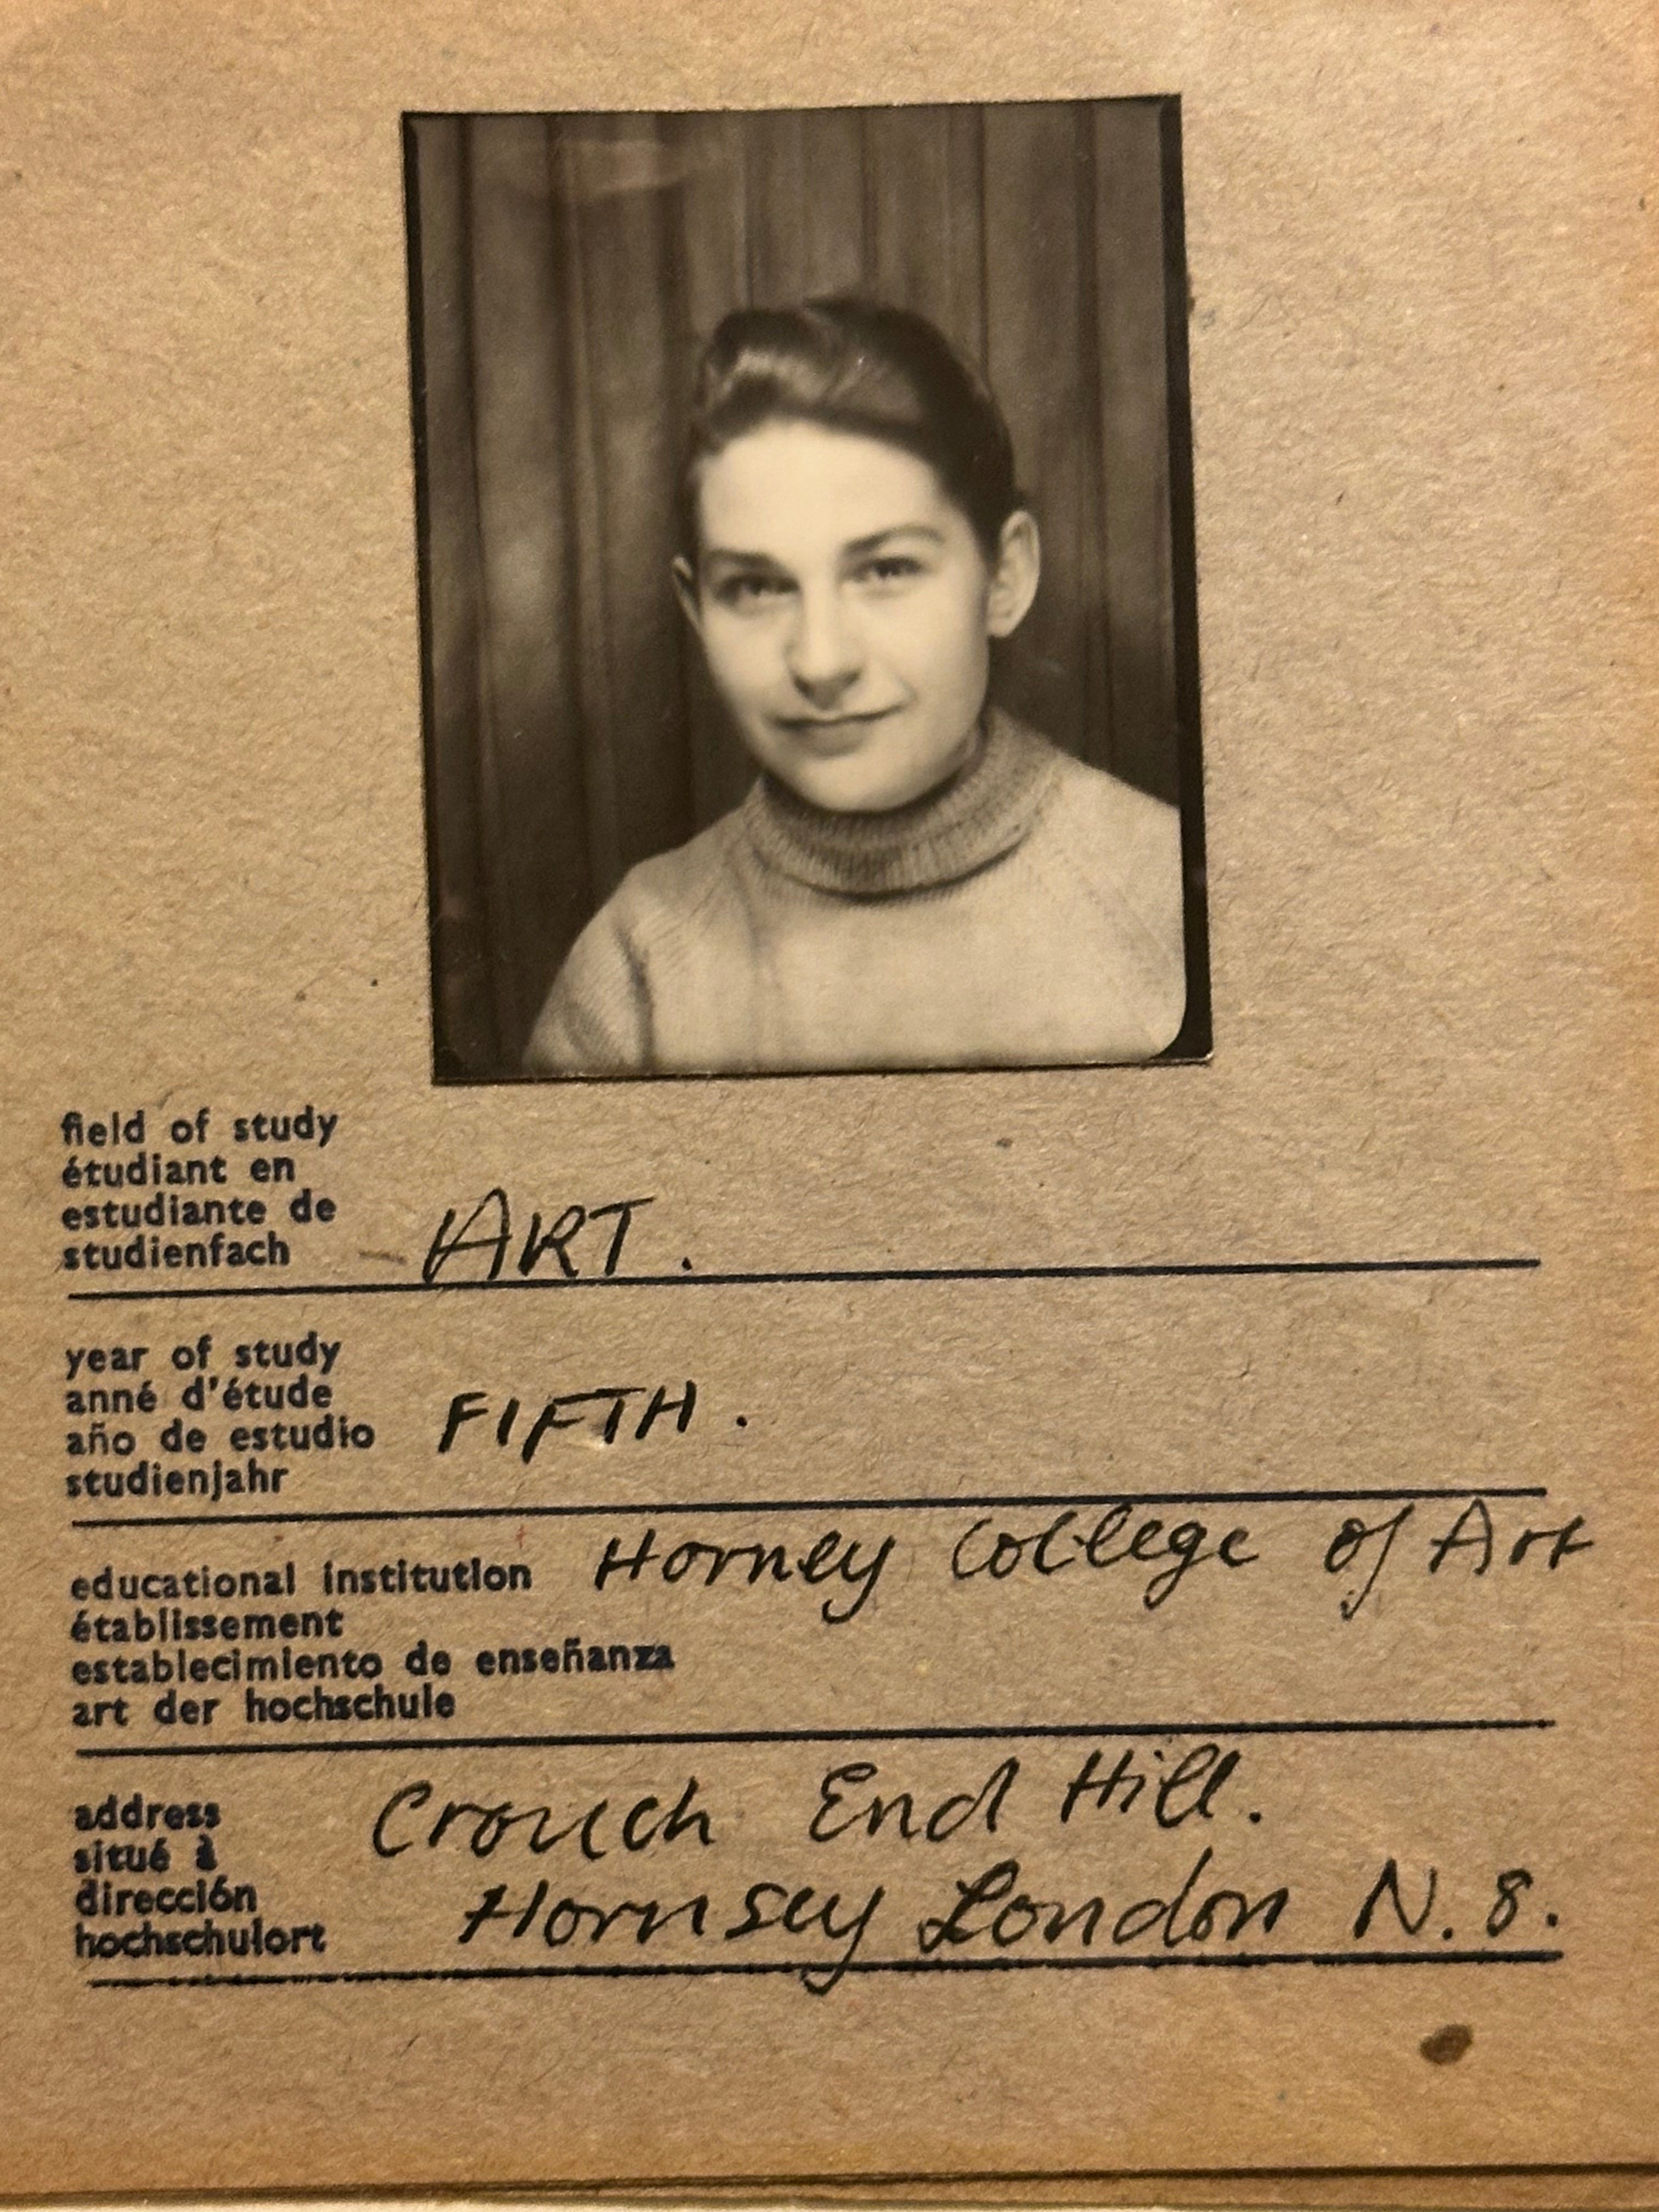 field of study
étudiant en
estudiante de
studienfach ART.
year of study
anné d'étude
año de estudio FIFTH.
studienjahr
educational institution Horney College of Art
établissement
establecimiento de enseñanza
art der hochschule
address Crouch End Hill.
situé à
dirección Hornsey London N. 8.
hochschulort